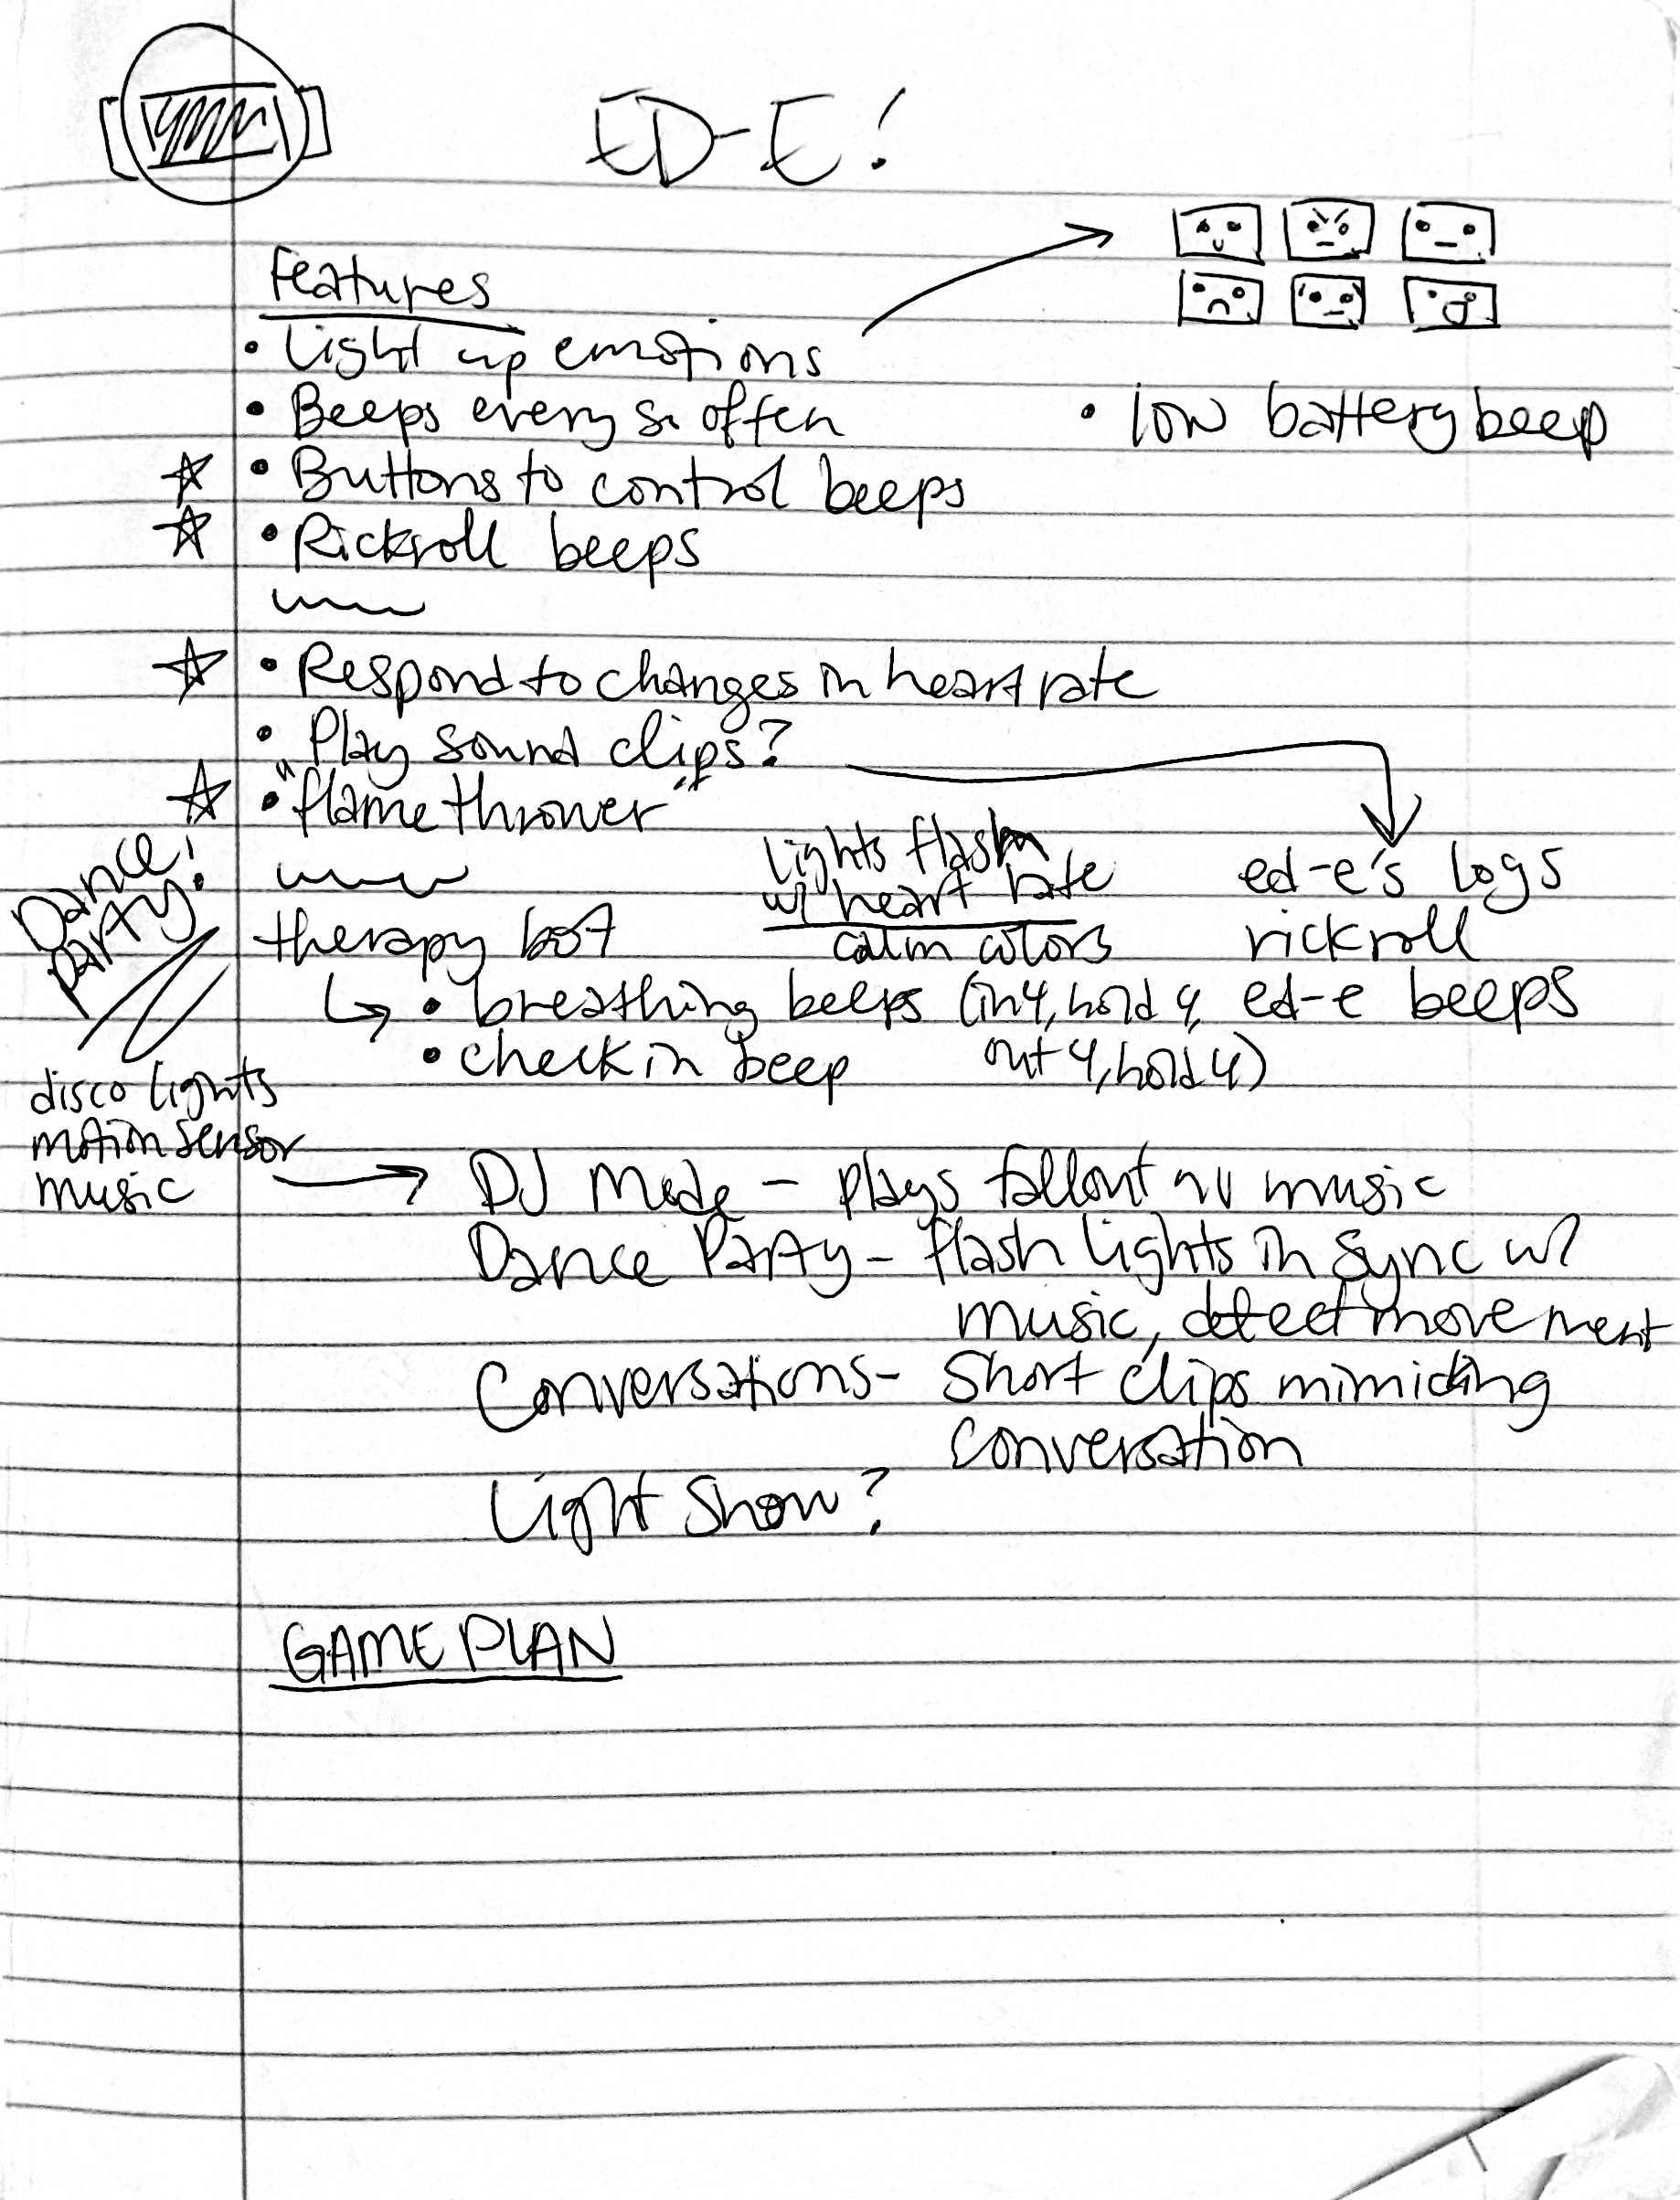 ED-E!
Features
• Light up emotions
• Beeps every so often
• low battery beep
• Buttons to control beeps
• Rickroll beeps
• Respond to changes in heart rate
• Play sound clips?
• "flame thrower"
Dance
Party!
Lights flash
w/ heart rate
calm colors
ed-e's logs
rickroll
ed-e beeps
therapy bot
• breathing beeps (in 4, hold 4,
out 4, hold 4)
• check in beep
disco lights
motion sensor
music
DJ Mode - plays fallout nv music
Dance Party - flash lights in sync w/
music, detect movement
Conversations - Short clips mimicking
conversation
Light Show?
GAME PLAN